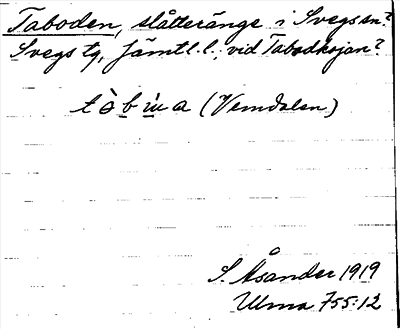 Taboden, slåtteränge i Svegs sn?
Svegs tg, Jämtl. l., vid Tabodkojan?
(Vemdalen)
S. Åsander 1919
Ulma 755:12